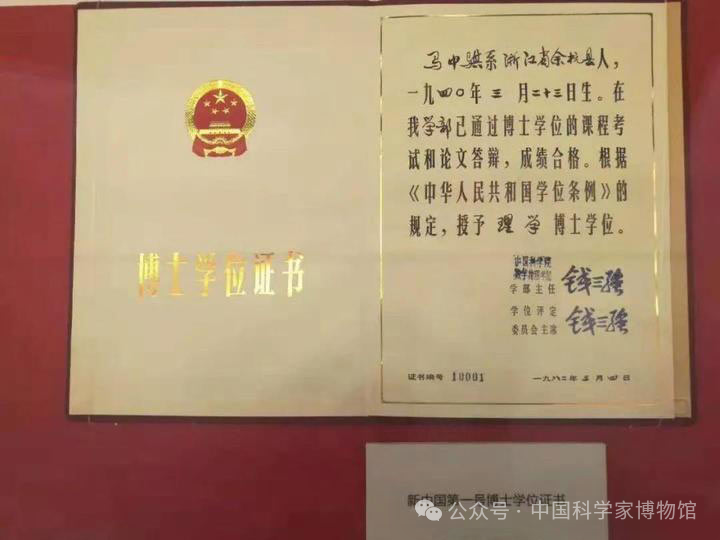 博士学位证书
马中骐系浙江省余杭县人，
一九四〇年三月二十三日生。在
我学部已通过博士学位的课程考
试和论文答辩，成绩合格。根据
《中华人民共和国学位条例》的
规定，授予理学博士学位。
中国科学院
数学物理学部
学部主任 钱三强
学位评定
委员会主席 钱三强
证书编号 10001 一九八二年三月四日
新中国第一号博士学位证书
公众号·中国科学家博物馆